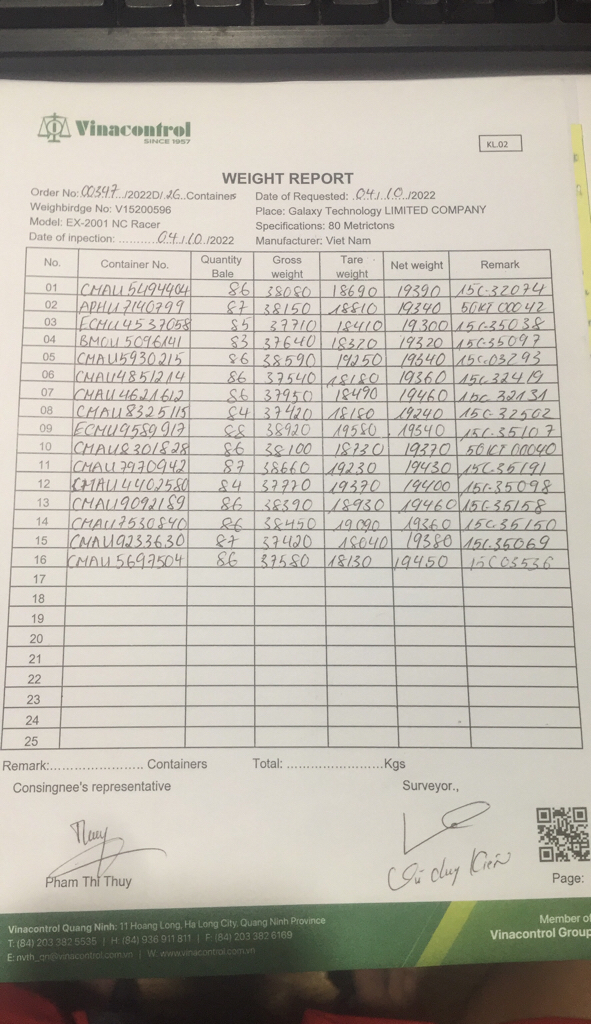 Vinacontrol
SINCE 1957
KL.02
WEIGHT REPORT
Order No: 00347 /2022D/ 26 Containers Date of Requested: 04/10/2022
Weighbirdge No: V15200596 Place: Galaxy Technology LIMITED COMPANY
Model: EX-2001 NC Racer Specifications: 80 Metrictons
Date of inpection: ..........04/10/2022 Manufacturer: Viet Nam
No. Container No. Quantity Bale Gross weight Tare weight Net weight Remark
01 CMAU5494404 86 38080 18690 19390 15C-32074
02 APHU7140799 87 38150 18810 19340 50KT 00042
03 ECMU4537058 85 37710 18410 19300 15C-35038
04 BMOU5096141 83 37640 18320 19320 15C-35097
05 CMAU5930215 86 38590 19250 19340 15C-03293
06 CMAU4851214 86 37540 18180 19360 15C 32419
07 CMAU4621612 86 37950 18490 19460 15C 32131
08 CMAU8325115 84 37420 18180 19240 15C-32502
09 ECMU9589917 88 38920 19580 19340 15C-35107
10 CMAU8301828 86 38100 18730 19370 50KT 00040
11 CMAU7970942 87 38660 19230 19430 15C-35191
12 CMAU4402580 84 37770 18370 19400 15C-35098
13 CMAU9092189 86 38390 18930 19460 15C-35158
14 CMAU7530840 86 38450 19090 19360 15C-35150
15 CMAU9233630 87 37420 18040 19380 15C.35069
16 CMAU5697504 86 37580 18130 19450 15C03536
17
18
19
20
21
22
23
24
25
Remark:................ Containers Total: ................Kgs
Consingnee's representative Surveyor.,
Thuy
Pham Thi Thuy
Page:
Vinacontrol Quang Ninh: 11 Hoang Long, Ha Long City, Quang Ninh Province
T: (84) 203 382 5535 | H: (84) 936 911 811 | F: (84) 203 382 6169
E: nvth_qn@vinacontrol.com.vn | W: www.vinacontrol.com.vn
Member of
Vinacontrol Group